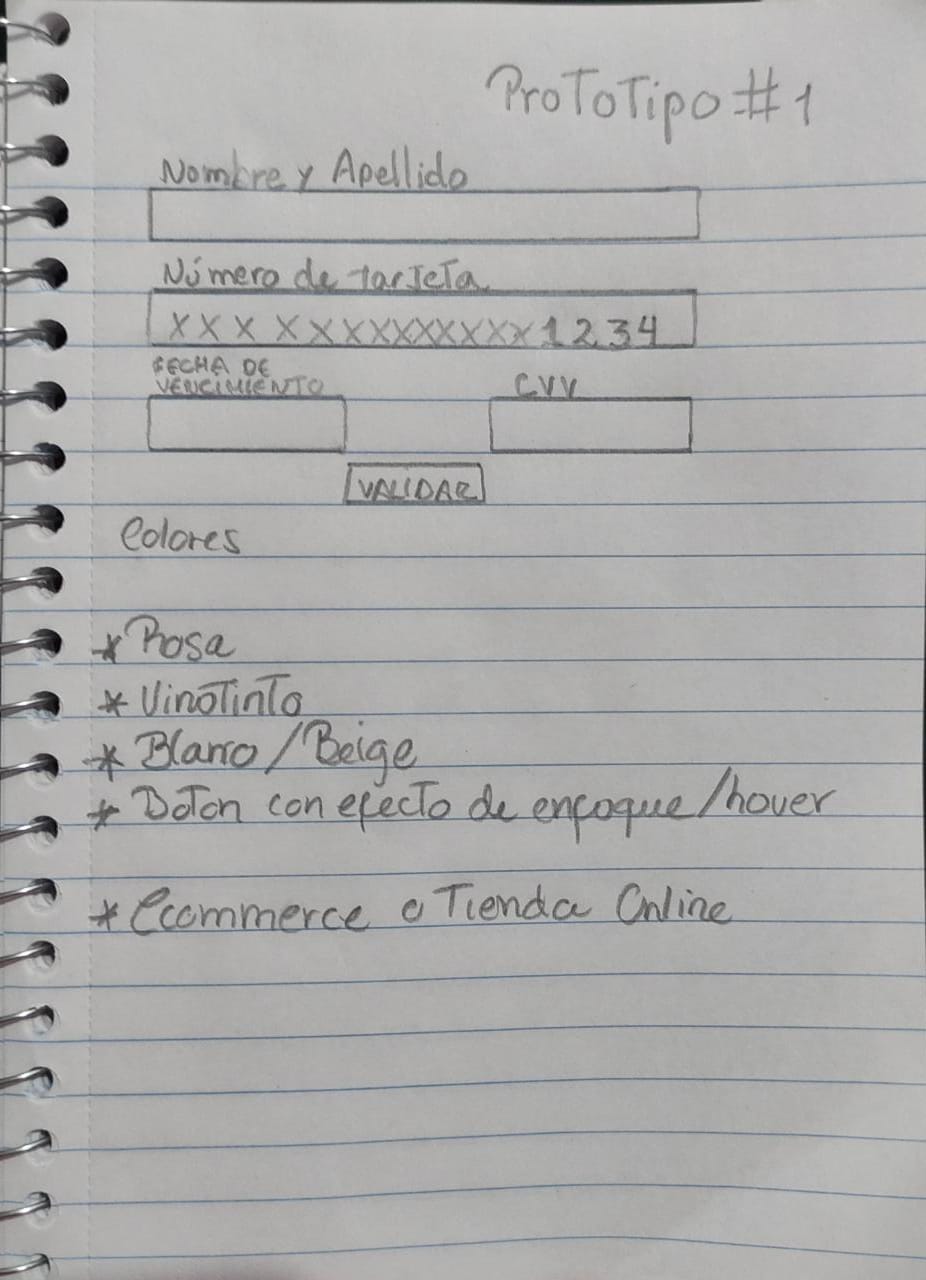 ProToTipo #1
Nombre y Apellido
Número de tarjeta
XXXXXXXXXXXX1234
FECHA DE
VENCIMIENTO
CVV
VALIDAR
Colores
* Rosa
* VinoTinto
* Blanco/Beige
* Boton con efecto de enfoque/hover
* Ecommerce o Tienda Online